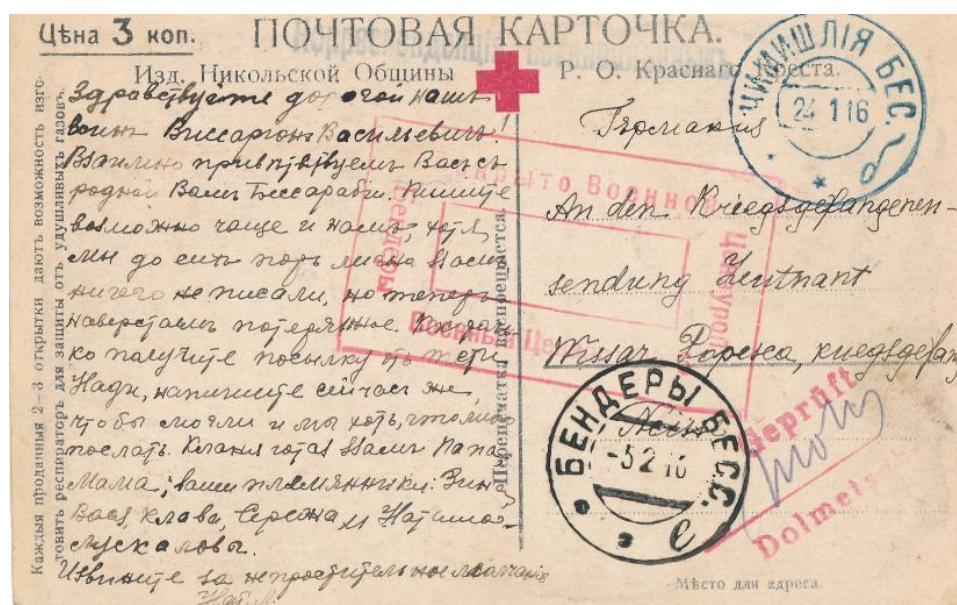 Цѣна 3 коп.
ПОЧТОВАЯ КАРТОЧКА.
Изд. Никольской Общины Р. О. Краснаго Креста.
Каждыя проданныя 2–3 открытки даютъ возможность изго-
товить респираторъ для защиты отъ удушливыхъ газовъ.
Здравствуйте дорогой нашъ
воинъ Виссаріонъ Васильевичъ!
Взаимно привѣтствуемъ Васъ съ
родной Вамъ Бессарабіи. Пишите
возможно чаще и намъ, хотя
мы до сихъ поръ лично Вамъ
ничего не писали, но теперь
наверстаемъ потерянное.
получите посылку отъ тети
Нади, напишите сейчас же,
чтобы могли и мы хоть что либо
послать. Вамъ Папа
Мама, ваши племянники: Зина
Вася, Клава, Сережа и Наташа
Мускаловы.
Извините за непростительное молчаніе
Перепечатка воспрещается.
ЦИМИШЛІЯ БЕС.
24 1 16
Германия
An den Kriegsgefangenen-
sendung Leutnant
Wissar. Popesca, kriegsgefang
Neisse
Вскрыто Военной
Цензурой
Военный Це
Бендеры
БЕНДЕРЫ БЕСС.
-5 2 16
е
Geprüft
Dolmets
Мѣсто для адреса.